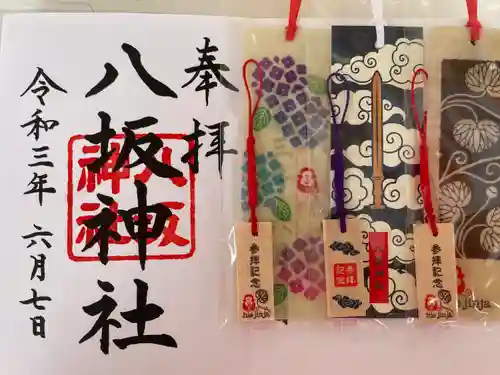 奉拝
八坂神社
八坂
神社
令和三年 六月七日
参拝記念
参拝
記念
参拝記念
jinja